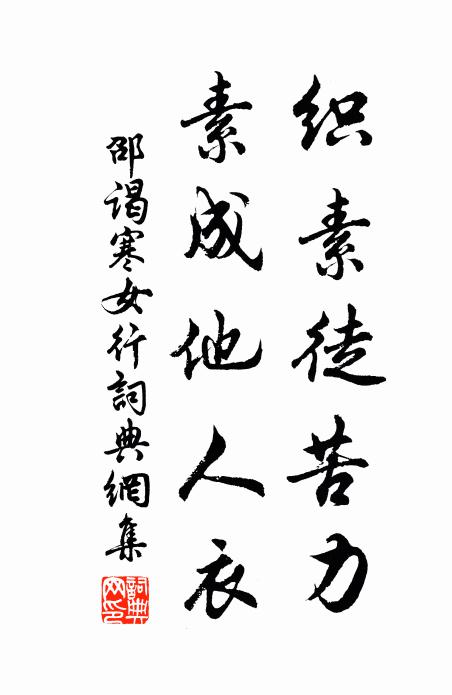 织素徒苦力
素成他人衣
邵谒寒女行詞典網集
詞典網印